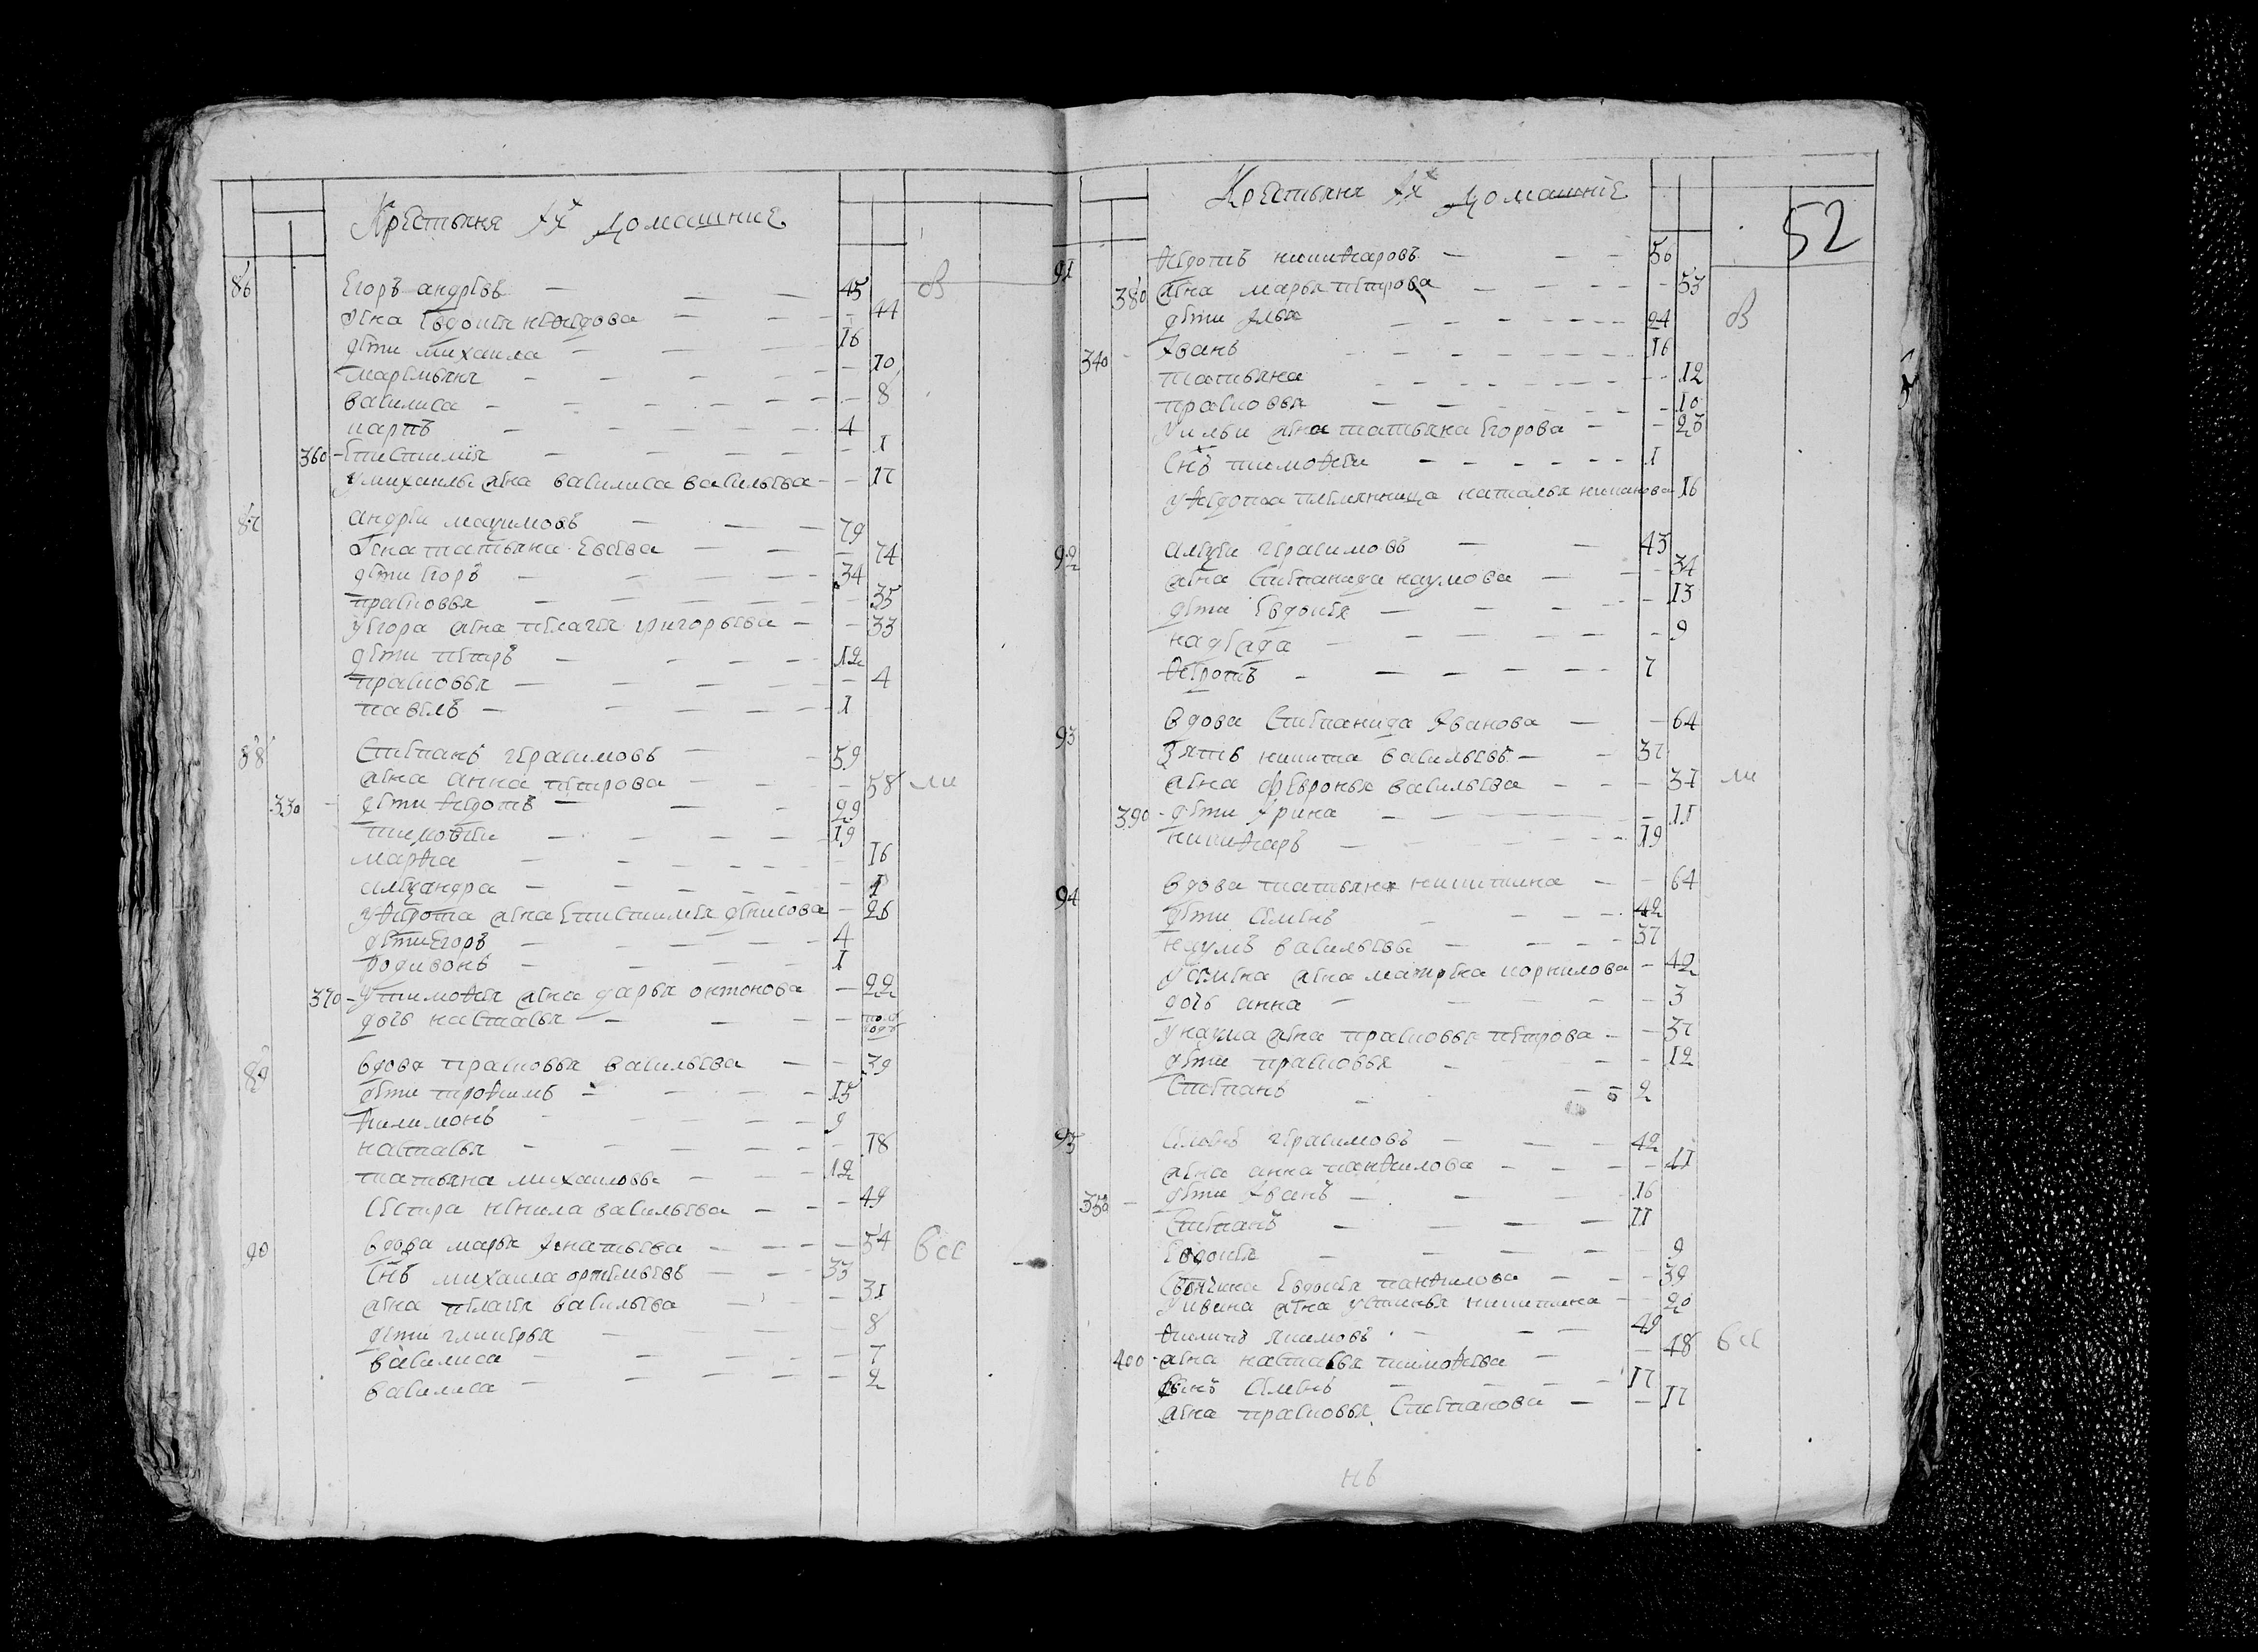 Крестьяня Іхъ Домашние
86 Егоръ андрѣевъ 45
жена Евдокѣя неѳедова 44
дѣти михаила 16
маремьяня 10
василиса 8
карпъ 4
360 Епистимия 1
У михаилы жена василиса васильева 17
87 андрей маѯимовъ 79
жена татьяна Евсева 74
дѣти Егоръ 34
прасковья 35
У Егора жена пелагея григорьева 33
дѣти петръ 12
прасковья 4
павелъ 1
88 Степанъ герасимовъ 59
жена анна петрова 58
330 дѣти ѳедотъ 29
тимоѳей 19
марѳа 16
алеѯандра
У ѳедота жена Епистимея денисова 26
дѣти Егоръ 4
родивонъ 1
370 У тимоѳея жена дарья онтонова 22
дочь настасья пол года
89 вдова прасковья васильева 39
дѣти троѳимъ 15
ѳилимонъ 9
настасья 18
татьяна михаиловъ 12
сестра ненила васильева 49
90 вдова марья Игнатьева 54 все
Снъ михаила ортемьевъ 33
жена пелагея васильева 31
дѣти гликерья 8
василиса 7
василиса 2
Крестьяня Іхъ Домашніе
52
91 ѳедотъ никиѳаровъ 50
380 жена марья петрова 53
дѣти Илья 24
340 Іванъ 16
татьяна 12
прасковья 10
У ильи жена татьяна Егорова 23
Снъ тимоѳей 1
У ѳедота племянница наталья никанова 16
92 алеѯей герасимовъ 43
жена Степанида наумова 34
дѣти Евдокѣя 13
надежда 9
ѳедотъ 7
93 вдова Степанида Іванова 64
Зять никита васильевъ 37
жена февронья васильева 37
390 дѣти Ірина 11
никиѳаръ 19
94 вдова татьяна никитина 64
дѣти Семенъ 42
наумъ васильевы 37
У Семена жена матрена корнилова 42
дочь анна 3
У наума жена прасковья петрова 37
дѣти прасковья 12
Степанъ 2
95 герасимовъ 42
жена анна панѳилова 41
350 дѣти Іванъ 16
Степанъ 11
Евдокѣя 9
Свояч­ина Евдокѣя панѳилова 39
У ивана жена устинья никитина 20
ѳилипъ якимовъ 49
400 жена настасья тимоѳева 48 все
Сынъ Семенъ 17
жена прасковья Степанова 17